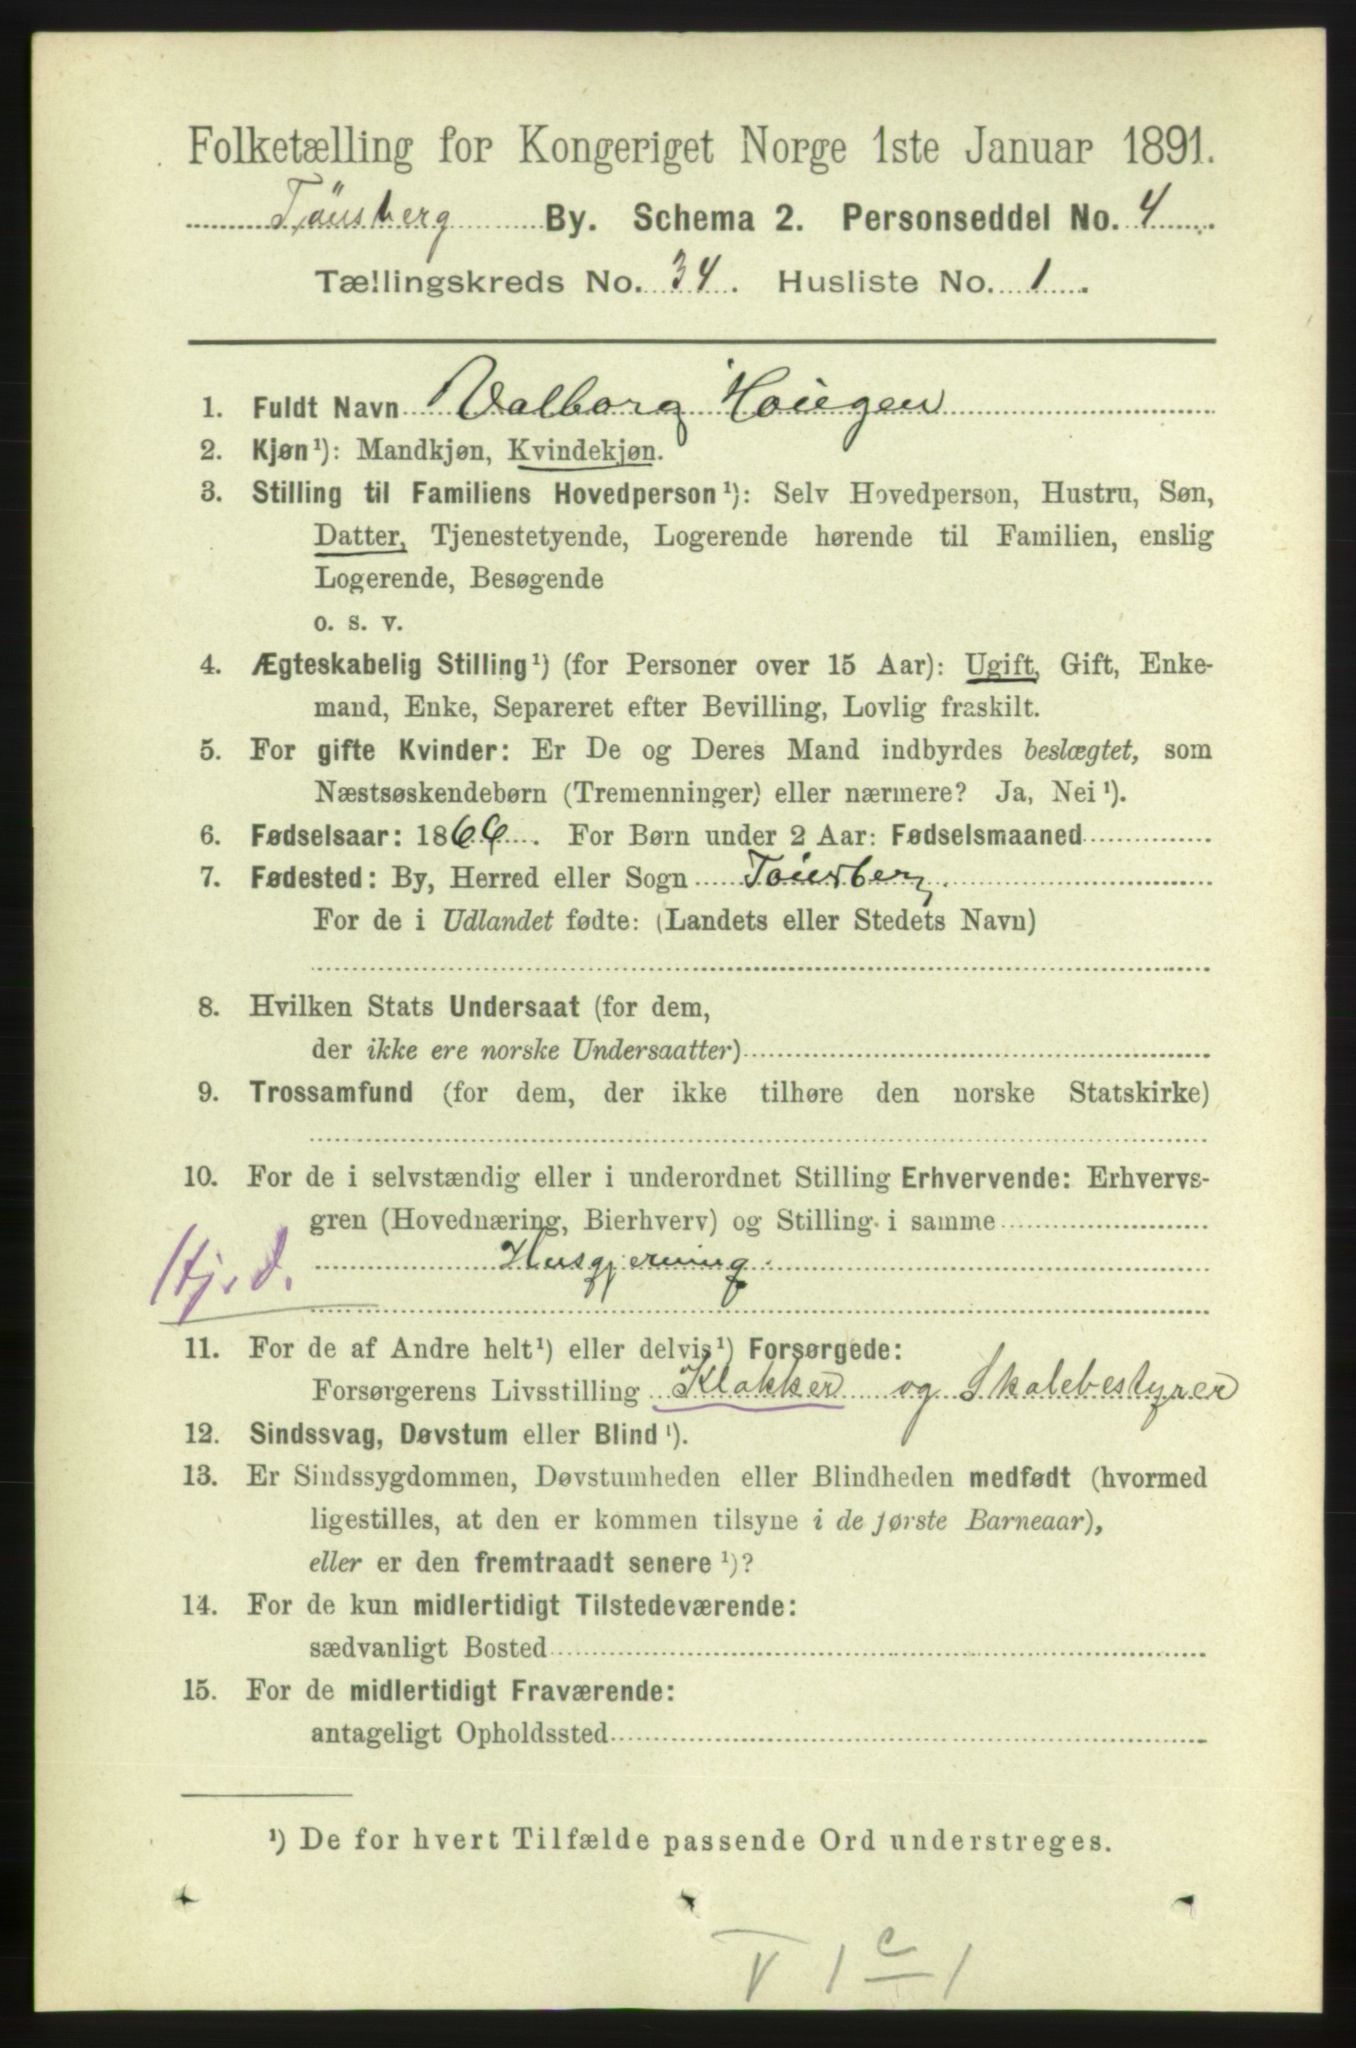 Folketælling for Kongeriget Norge 1ste Januar 1891.
Tönsberg By. Schema 2. Personseddel No. 4
Tællingskreds No. 34. Husliste No. 1.
1. Fuldt Navn Valborg Hougen
2. Kjøn¹): Mandkjøn, Kvindekjøn.
3. Stilling til Familiens Hovedperson¹): Selv Hovedperson, Hustru, Søn,
Datter, Tjenestetyende, Logerende hørende til Familien, enslig
Logerende, Besøgende
o. s. v.
4. Ægteskabelig Stilling¹) (for Personer over 15 Aar): Ugift, Gift, Enke-
mand, Enke, Separeret efter Bevilling, Lovlig fraskilt.
5. For gifte Kvinder: Er De og Deres Mand indbyrdes beslægtet, som
Næstsøskendebørn (Tremenninger) eller nærmere? Ja, Nei¹).
6. Fødselsaar: 1866. For Børn under 2 Aar: Fødselsmaaned
7. Fødested: By, Herred eller Sogn Tönsberg.
For de i Udlandet fødte: (Landets eller Stedets Navn)
8. Hvilken Stats Undersaat (for dem,
der ikke ere norske Undersaatter)
9. Trossamfund (for dem, der ikke tilhøre den norske Statskirke)
10. For de i selvstændig eller i underordnet Stilling Erhvervende: Erhvervs-
gren (Hovednæring, Bierhverv) og Stilling i samme
Hj. d. Husgjerning.
11. For de af Andre helt¹) eller delvis¹) Forsørgede:
Forsørgerens Livsstilling Klokker og Skolebestyrer
12. Sindssvag, Døvstum eller Blind¹).
13. Er Sindssygdommen, Døvstumheden eller Blindheden medfødt (hvormed
ligestilles, at den er kommen tilsyne i de første Barneaar),
eller er den fremtraadt senere¹)?
14. For de kun midlertidigt Tilstedeværende:
sædvanligt Bosted
15. For de midlertidigt Fraværende:
antageligt Opholdssted
¹) De for hvert Tilfælde passende Ord understreges.
V 1 c 1